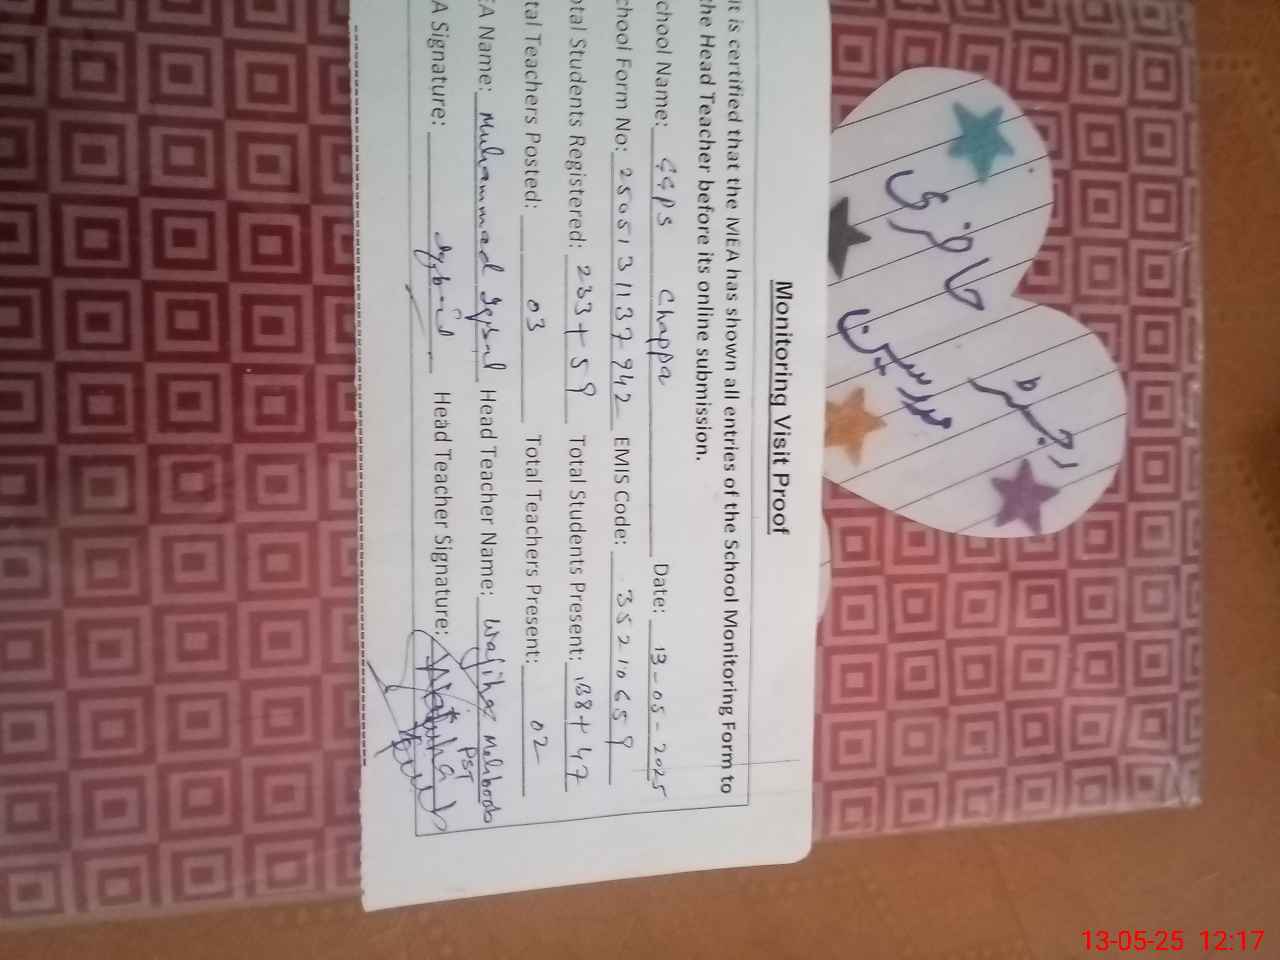 Monitoring Visit Proof
It is certified that the MEA has shown all entries of the School Monitoring Form to
the Head Teacher before its online submission.
chool Name: GGPS Chappa Date: 13-05-2025
chool Form No: 2505131137942 EMIS Code: 35210659
otal Students Registered: 233+59 Total Students Present: 188+47
tal Teachers Posted: 03 Total Teachers Present: 02
EA Name: Muhammad Iqbal Head Teacher Name: Wajiha Mehboob
PST
A Signature: Head Teacher Signature:
رجسٹر
حاضری
مدرسین
13-05-25 12:17